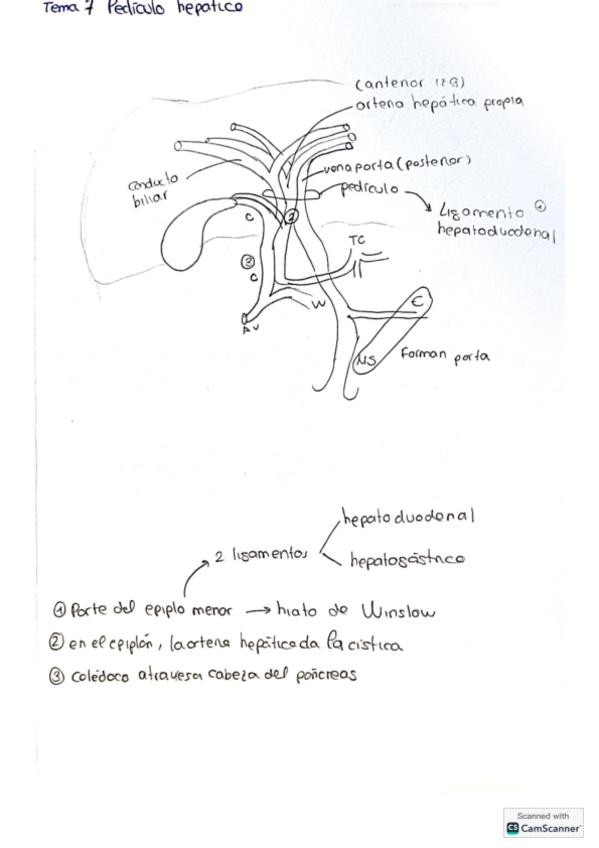 Tema 7 Pedículo hepático
(anterior izq)
arteria hepática propia
vena porta (posterior)
conducto
biliar
pedículo
Ligamento ①
hepatoduodenal
C
②
TC
③
C
W
AV
E
MS
Forman porta
hepatoduodenal
2 ligamentos
hepatogástrico
① Parte del epiplo menor → hiato de Winslow
② en el epiplón, la arteria hepática da la cística
③ Colédoco atraviesa cabeza del páncreas
Scanned with
CS CamScanner